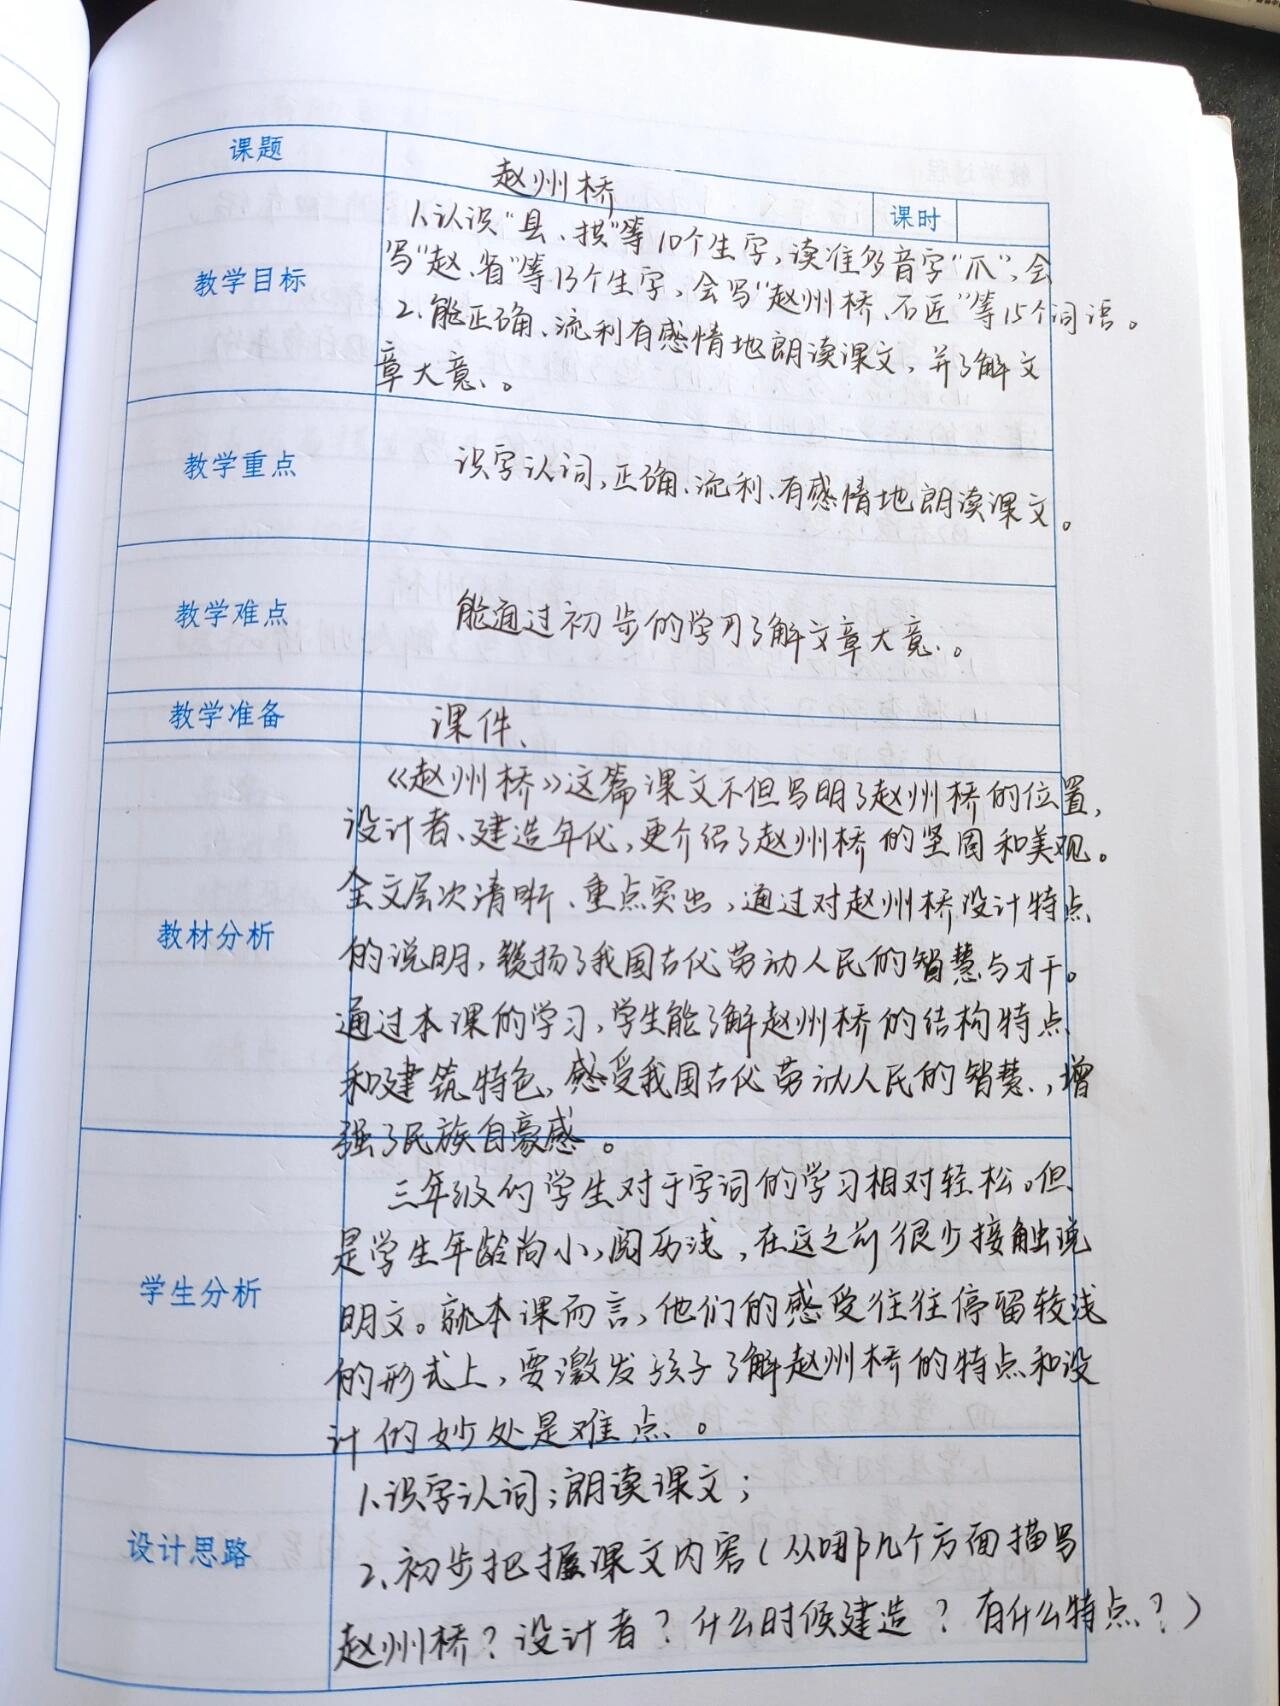 课题
赵州桥
课时
教学目标
1.认识“县、拱”等10个生字,读准多音字“爪”,会
写“赵、省”等13个生字,会写“赵州桥、石匠”等15个词语。
2.能正确、流利有感情地朗读课文,并了解文
章大意。
教学重点
识字认词,正确、流利、有感情地朗读课文。
教学难点
能通过初步的学习了解文章大意。
教学准备
课件、
教材分析
《赵州桥》这篇课文不但写明了赵州桥的位置,
设计者、建造年代,更介绍了赵州桥的坚固和美观。
全文层次清晰、重点突出,通过对赵州桥设计特点
的说明,赞扬了我国古代劳动人民的智慧与才干。
通过本课的学习,学生能了解赵州桥的结构特点
和建筑特色,感受我国古代劳动人民的智慧,增
强了民族自豪感。
学生分析
三年级的学生对于字词的学习相对轻松。但
是学生年龄尚小,阅历浅,在这之前很少接触说
明文。就本课而言,他们的感受往往停留较浅
的形式上,要激发孩子了解赵州桥的特点和设
计的妙处是难点。
设计思路
1.识字认词;朗读课文;
2.初步把握课文内容(从哪几个方面描写
赵州桥?设计者?什么时候建造?有什么特点?)